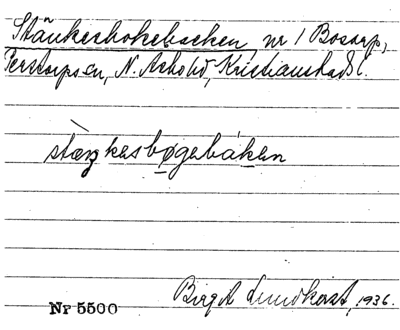 Stänkeshokebacken nr 1 Bosarp,
Perstorps sn, N. Åsbo hd, Kristianstads l.
stæŋkesbøgebáken
Birgit Lundkvist, 1936.
Nr 5500